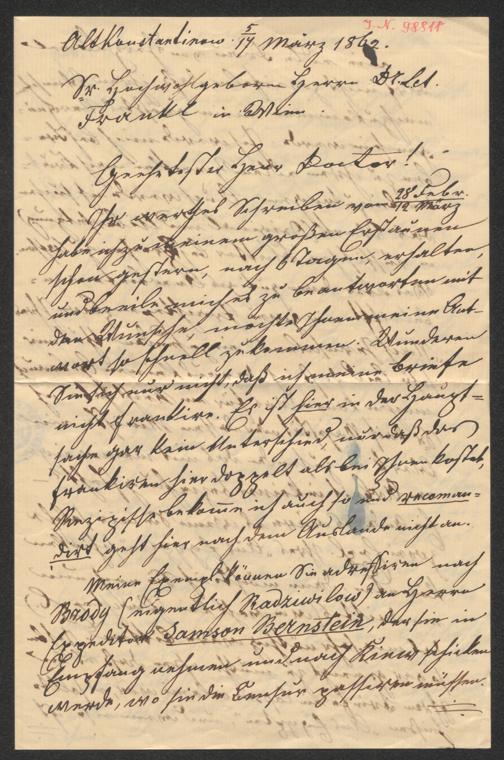 J. N. 98811
AltKonstantinow 5/17 März 1862.
Sr. Hochwohlgeborn Herrn Dr. Let.
Frankl in Wien.
Geehrtester Herr Doctor!
Ihr werthes Schreiben vom 28 Febr. / 12 März
habe ich zu meinem großen Erstaunen
schon gestern, nach 6 Tagen, erhalten,
und beeile mich es zu beantworten mit
dem Wunsche, möchte Ihnen meine Ant-
wort so schnell zukommen. Wunderen
Sie sich nur nicht, daß ich meine Briefe
nicht frankire. Es ist hier in der Haupt=
sache gar kein Unterschied, nur daß das
frankiren hier doppelt als bei Ihnen kostet,
Rezipisse bekomme ich auch so und recoman-
dirt geht hier nach dem Auslande nicht an.
Meine Exempl. können Sie adressiren nach
Brody (eigentlich Radziwilow) an Herrn
Expeditor Samson Bernstein, der sie in
Empfang nehmen und nach Kiew schicken
werde, wo sie die Censur passiren müssen.